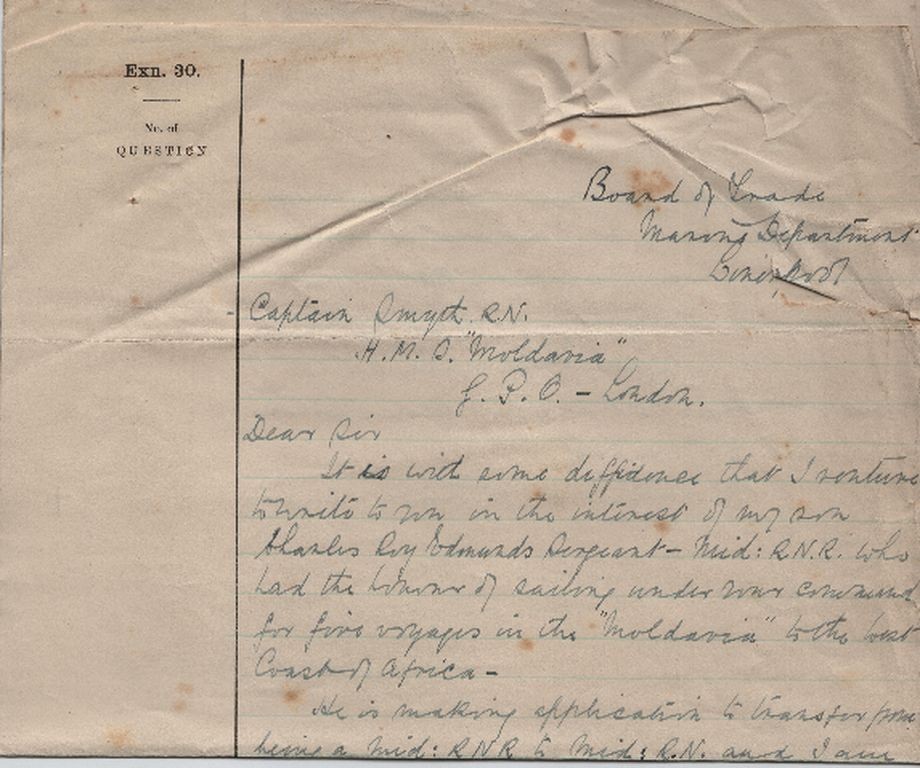 Exn. 30.
No. of
QUESTION
Board of Trade
Marine Department
Liverpool
Captain Smyth R.N.
H.M.S. "Moldavia"
G.P.O. - London.
Dear Sir
It is with some diffidence that I venture
to write to you in the interest of my son
Charles Roy Edmunds Sergeant - Mid: R.N.R. who
had the honour of sailing under your command
for five voyages in the "Moldavia" to the West
Coast of Africa -
He is making application to transfer from
being a Mid: RNR to Mid: R.N. and I am